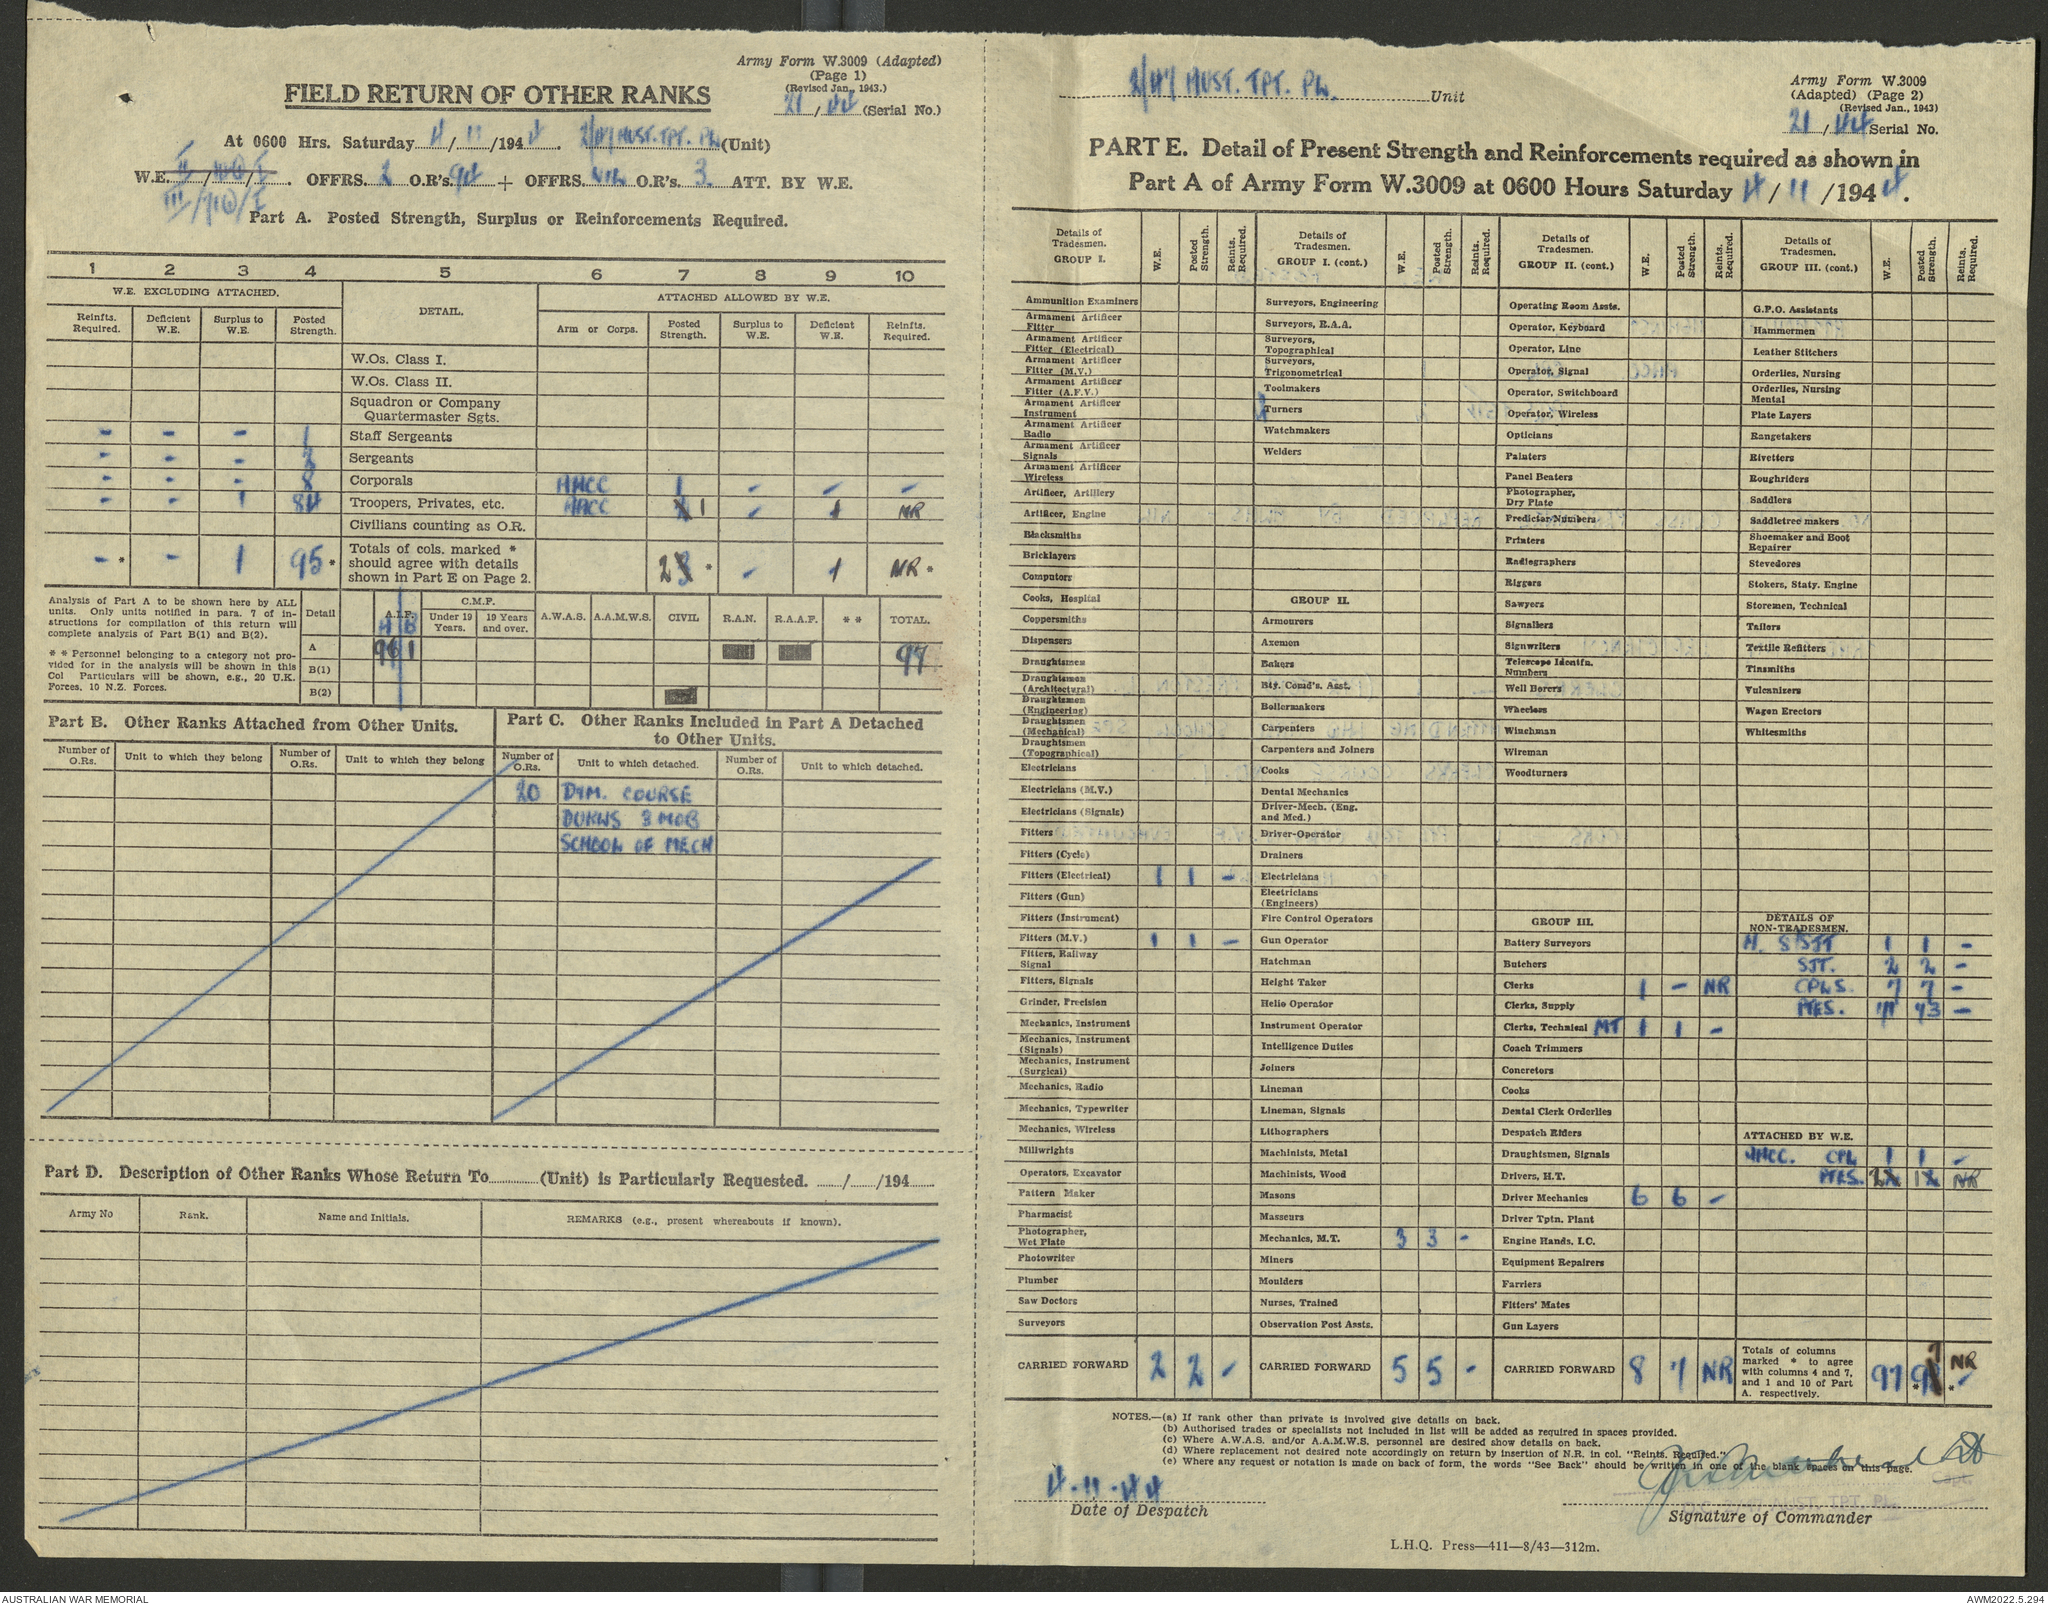 Army Form W.3009 (Adapted)
(Page 1)
(Revised Jan., 1943.)
21/44 (Serial No.)
FIELD RETURN OF OTHER RANKS
At 0600 Hrs. Saturday 4/11/1944. 2/47 AUST. TPT. PL (Unit)
W.E. OFFRS. 2 O.R's. 94 + OFFRS. NIL O.R's. 3 ATT. BY W.E.
Part A. Posted Strength, Surplus or Reinforcements Required.
1 2 3 4 5 6 7 8 9 10
W.E. EXCLUDING ATTACHED. DETAIL. ATTACHED ALLOWED BY W.E.
Reinfts. Required. Deficient W.E. Surplus to W.E. Posted Strength. Arm or Corps. Posted Strength. Surplus to W.E. Deficient W.E. Reinfts. Required.
W.Os. Class I.
W.Os. Class II.
Squadron or Company Quartermaster Sgts.
- - - 1 Staff Sergeants
- - - 2 Sergeants
- - - 8 Corporals AACC 1 - - -
- - 1 84 Troopers, Privates, etc. AACC 1 - 1 NR
Civilians counting as O.R.
- * - 1 95 * Totals of cols. marked * should agree with details shown in Part E on Page 2. 2 * - 1 NR *
Analysis of Part A to be shown here by ALL units. Only units notified in para. 7 of instructions for compilation of this return will complete analysis of Part B(1) and B(2).
* * Personnel belonging to a category not provided for in the analysis will be shown in this Col Particulars will be shown, e.g., 20 U.K. Forces, 10 N.Z. Forces.
Detail A.I.F. C.M.F. Under 19 Years. 19 Years and over. A.W.A.S. A.A.M.W.S. CIVIL R.A.N. R.A.A.F. * * TOTAL.
A B
A 96 1 97
B(1)
B(2)
Part B. Other Ranks Attached from Other Units.
Number of O.Rs. Unit to which they belong Number of O.Rs. Unit to which they belong
Part C. Other Ranks Included in Part A Detached to Other Units.
Number of O.Rs. Unit to which detached. Number of O.Rs. Unit to which detached.
20 D&M. COURSE
DUKWS 3 MOB
SCHOOL OF MECH
Part D. Description of Other Ranks Whose Return To (Unit) is Particularly Requested. / /194
Army No Rank. Name and Initials. REMARKS (e.g., present whereabouts if known).
2/47 AUST. TPT. PL. Unit
Army Form W.3009
(Adapted) (Page 2)
(Revised Jan., 1943)
21/44 Serial No.
PART E. Detail of Present Strength and Reinforcements required as shown in
Part A of Army Form W.3009 at 0600 Hours Saturday 4/11/1944.
Details of Tradesmen. GROUP I. W.E. Posted Strength. Reints. Required.
Ammunition Examiners
Armament Artificer Fitter
Armament Artificer Fitter (Electrical)
Armament Artificer Fitter (M.V.)
Armament Artificer Fitter (A.F.V.)
Armament Artificer Instrument
Armament Artificer Radio
Armament Artificer Signals
Armament Artificer Wireless
Artificer, Artillery
Artificer, Engine
Blacksmiths
Bricklayers
Computors
Cooks, Hospital
Coppersmiths
Dispensers
Draughtsmen
Draughtsmen (Architectural)
Draughtsmen (Engineering)
Draughtsmen (Mechanical)
Draughtsmen (Topographical)
Electricians
Electricians (M.V.)
Electricians (Signals)
Fitters
Fitters (Cycle)
Fitters (Electrical) 1 1 -
Fitters (Gun)
Fitters (Instrument)
Fitters (M.V.) 1 1 -
Fitters, Railway Signal
Fitters, Signals
Grinder, Precision
Mechanics, Instrument
Mechanics, Instrument (Signals)
Mechanics, Instrument (Surgical)
Mechanics, Radio
Mechanics, Typewriter
Mechanics, Wireless
Millwrights
Operators, Excavator
Pattern Maker
Pharmacist
Photographer, Wet Plate
Photowriter
Plumber
Saw Doctors
Surveyors
CARRIED FORWARD 2 2 -
Details of Tradesmen. GROUP I. (cont.) W.E. Posted Strength. Reints. Required.
Surveyors, Engineering
Surveyors, R.A.A.
Surveyors, Topographical
Surveyors, Trigonometrical
Toolmakers
Turners
Watchmakers
Welders
GROUP II.
Armourers
Axemen
Bakers
Bty. Comd's. Asst.
Boilermakers
Carpenters
Carpenters and Joiners
Cooks
Dental Mechanics
Driver-Mech. (Eng. and Med.)
Driver-Operator
Drainers
Electricians
Electricians (Engineers)
Fire Control Operators
Gun Operator
Hatchman
Height Taker
Helio Operator
Instrument Operator
Intelligence Duties
Joiners
Lineman
Lineman, Signals
Lithographers
Machinists, Metal
Machinists, Wood
Masons
Masseurs
Mechanics, M.T. 3 3 -
Miners
Moulders
Nurses, Trained
Observation Post Assts.
CARRIED FORWARD 5 5 -
Details of Tradesmen. GROUP II. (cont.) W.E. Posted Strength. Reints. Required.
Operating Room Assts.
Operator, Keyboard
Operator, Line
Operator, Signal
Operator, Switchboard
Operator, Wireless
Opticians
Painters
Panel Beaters
Photographer, Dry Plate
Predictor Numbers
Printers
Radiographers
Riggers
Sawyers
Signallers
Signwriters
Telescope Identfn. Numbers
Well Borers
Wheelers
Winchman
Wireman
Woodturners
GROUP III.
Battery Surveyors
Butchers
Clerks 1 - NR
Clerks, Supply
Clerks, Technical MT 1 1 -
Coach Trimmers
Concretors
Cooks
Dental Clerk Orderlies
Despatch Riders
Draughtsmen, Signals
Drivers, H.T.
Driver Mechanics 6 6 -
Driver Tptn. Plant
Engine Hands, I.C.
Equipment Repairers
Farriers
Fitters' Mates
Gun Layers
CARRIED FORWARD 8 7 NR
Details of Tradesmen. GROUP III. (cont.) W.E. Posted Strength. Reints. Required.
G.P.O. Assistants
Hammermen
Leather Stitchers
Orderlies, Nursing
Orderlies, Nursing Mental
Plate Layers
Rangetakers
Rivetters
Roughriders
Saddlers
Saddletree makers
Shoemaker and Boot Repairer
Stevedores
Stokers, Staty. Engine
Storemen, Technical
Tailors
Textile Refitters
Tinsmiths
Vulcanizers
Wagon Erectors
Whitesmiths
DETAILS OF NON-TRADESMEN.
1 1 -
SJT. 2 2 -
CPLS. 7 7 -
PTES. 73 -
ATTACHED BY W.E.
AACC. CPL 1 1 -
PTES. 2 1 NR
Totals of columns marked * to agree with columns 4 and 7, and 1 and 10 of Part A. respectively. 97 * 97 * NR
NOTES.—(a) If rank other than private is involved give details on back.
(b) Authorised trades or specialists not included in list will be added as required in spaces provided.
(c) Where A.W.A.S. and/or A.A.M.W.S. personnel are desired show details on back.
(d) Where replacement not desired note accordingly on return by insertion of N.R. in col. "Reints. Required."
(e) Where any request or notation is made on back of form, the words "See Back" should be written in one of the blank spaces on this page.
4-11-44
Date of Despatch
Signature of Commander
L.H.Q. Press—411—8/43—312m.
AUSTRALIAN WAR MEMORIAL
AWM2022.5.294